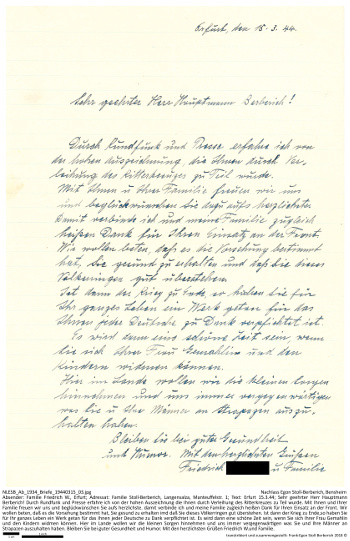 Erfurt, den 15.3.44.
Sehr geehrter Herr Hauptmann Berberich!
Durch Rundfunk und Presse erfahre ich von
der hohen Auszeichnung die Ihnen durch Ver-
leihung des Ritterkreuzes zu Teil wurde.
Mit Ihnen u Ihrer Familie freuen wir uns
und beglückwünschen Sie dazu aufs herzlichste.
Damit verbinde ich und meine Familie zugleich
heißen Dank für Ihren Einsatz an der Front.
Wir wollen beten, daß es die Vorsehung bestimmt
hat, Sie gesund zu erhalten und daß Sie dieses
Völkerringen gut überstehen.
Ist dann der Krieg zu Ende, so haben Sie für
Ihr ganzes Leben ein Werk getan für das
Ihnen jeder Deutsche zu Dank verpflichtet ist.
Es wird dann eine schöne Zeit sein, wenn
Sie sich Ihrer Frau Gemahlin und den
Kindern widmen können.
Hier im Lande wollen wir die kleinen Sorgen
hinnehmen und uns immer vergegenwärtigen
was Sie u Ihre Männer an Strapazen auszu-
halten haben.
Bleiben Sie bei guter Gesundheit
und Humor. Mit den herzlichsten Grüßen
Friedrich u Familie
NLESB_Ab_1934_Briefe_19440315_03.jpg Nachlass Egon Stoll-Berberich, Bensheim
Absender: Familie Friedrich W., Erfurt; Adressat: Familie Stoll-Berberich, Langensalza, Manteuffelstr. 1; Text: Erfurt 15.3.44; Sehr geehrter Herr Hauptmann
Berberich! Durch Rundfunk und Presse erfahre ich von der hohen Auszeichnung die Ihnen durch Verleihung des Ritterkreuzes zu Teil wurde. Mit Ihnen und Ihrer
Familie freuen wir uns und beglückwünschen Sie aufs herzlichste. Damit verbinde ich und meine Familie zugleich heißen Dank für Ihren Einsatz an der Front. Wir
wollen beten, daß es die Vorsehung bestimmt hat, Sie gesund zu erhalten und daß Sie dieses Völkerringen gut überstehen. Ist dann der Krieg zu Ende,so haben Sie
für Ihr ganzes Leben ein Werk getan für das Ihnen jeder Deutsche zu Dank verpflichtet ist. Es wird dann eine schöne Zeit sein, wenn Sie sich Ihrer Frau Gemahlin
und den Kindern widmen können. Hier im Lande wollen wir die kleinen Sorgen hinnehmen und uns immer vergegenwärtigen was Sie und Ihre Männer an
Strapazen auszuhalten haben. Bleiben Sie bei guter Gesundheit und Humor. Mit den herzlichsten Grüßen Friedrich W und Familie.
transkribiert und zusammengestellt: Frank-Egon Stoll-Berberich 2018 ©